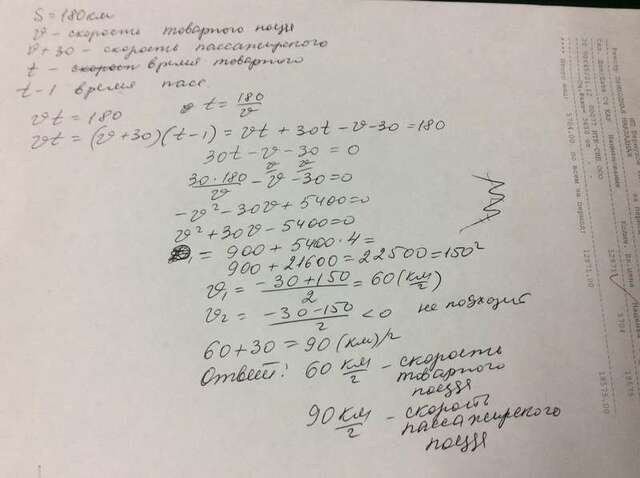 S = 180 км
v - скорость товарного поезда
v + 30 - скорость пассажирского
t - скорост время товарного
t - 1 время пасс
vt = 180 t = 180/v
vt = (v + 30)(t - 1) = vt + 30t - v - 30 = 180
30t - v - 30 = 0
30·180/v - v - 30 = 0
-v² - 30v + 5400 = 0
v² + 30v - 5400 = 0
= 900 + 5400·4 =
900 + 21600 = 22500 = 150²
v₁ = (-30 + 150)/2 = 60 (км/г)
v₂ = (-30 - 150)/2 < 0 не подходит
60 + 30 = 90 (км)/г
Ответ: 60 км/г - скорость
товарного
поезда
90 км/г - скорость
пассажирского
поезда